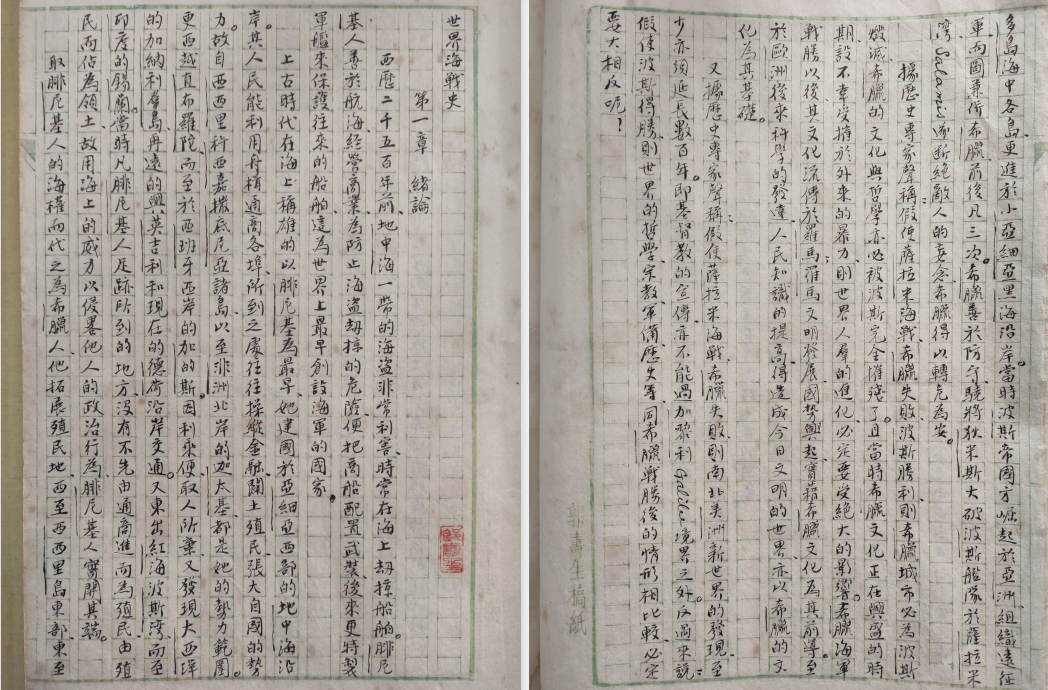 世界海戰史
第一章 緒論
西歷二千五百年前、地中海一帶的海盜非常利害、時常在海上劫掠船舶。腓尼
基人善於航海經營商業、為防止海盜劫掠的危險、便把商船配置武裝、後來更特製
軍艦來保護往來的船舶、這為世界上最早創設海軍的國家。
上古時代在海上稱雄的以腓尼基為最早、她建國於亞細亞西部的地中海沿
岸。其人民能利用舟楫通商各埠、所到之處往往操縱金融、闢土殖民、張大自國的勢
力。故自西西里科西嘉撒底尼亞諸島以至非洲北岸的加太基都是她的勢力範圍。
更西越直布羅陀、而至於西班牙西岸的加的斯。因利乘便、取人所棄、又發現大西洋
的加納利羣島、再遠的與英吉利和現在的德荷沿岸交通。又東出紅海波斯灣、而至
印度的錫蘭。當時凡腓尼基人足跡所到的地方、沒有不先由通商進而為殖民、由殖
民而佔為領土、故用海上的威力以侵畧他人的政治行為、腓尼基人實開其端。
取腓尼基人的海權而代之為希臘人、他拓展殖民地、西至西西里島東部、東至
多島海中各島、更進於小亞細亞黑海沿岸。當時波斯帝國方崛起於亞洲、組織遠征
軍、而圖兼併希臘、前後凡三次。希臘善於防守、驍將狄米斯大破波斯艦隊於薩拉米
灣 Salamis 遂斷絕敵人的妄念、希臘得以轉危為安。
據歷史專家聲稱：假使薩拉米海戰、希臘失敗、波斯勝利、則希臘城市必為波斯
燬滅、希臘的文化與哲學亦必被波斯完全摧殘了。且當時希臘文化正在興盛的時
期、設不幸受摧於外來的暴力、則世界人羣的進化必定要受絕大的影響。希臘海軍
戰勝以後、其文化流傳於羅馬；羅馬文明發展、國勢興起、實藉希臘文化為其前導。至
於歐洲後來科學的發達、人民知識的提高、得造成今日文明的世界、亦以希臘的文
化為其基礎。
又據歷史專家聲稱：假使薩拉米海戰希臘失敗、則南北美洲新世界的發現、至
少亦須延長數百年。即基督教的宣傳、亦不能過加黎利 Galilee 境界之外。反過來說：
假使波斯得勝、則世界的哲學宗教軍備歷史等、同希臘戰勝後的情形相比較、必定
要大相反呢！
郭壽生稿紙